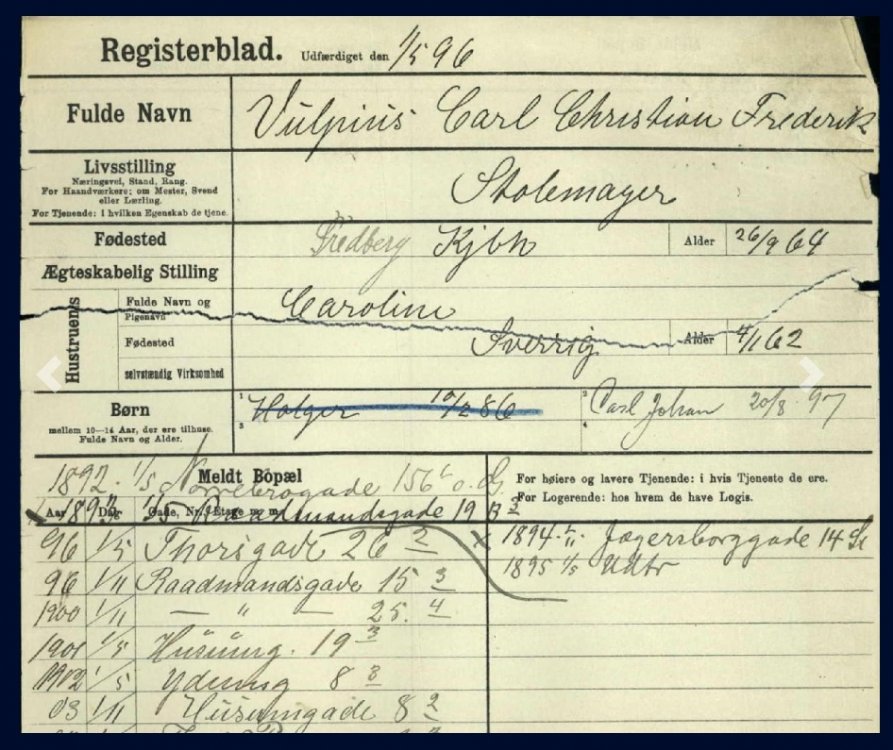 Registerblad. Udfærdiget den 1/5 96
Fulde Navn Vulpius Carl Christian Frederik
Livsstilling
Næringsvei, Stand, Rang.
For Haandværkere: om Mester, Svend
eller Lærling.
For Tjenende: i hvilken Egenskab de tjene.
Stolemager
Fødested Kjbh Alder 26/9 64
Ægteskabelig Stilling
Hustruens
Fulde Navn og
Pigenavn
Caroline
Fødested Sverrig Alder 4/1 62
selvstændig Virksomhed
Børn
mellem 10—14 Aar, der ere tilhuse.
Fulde Navn og Alder.
1 Holger 10/2 86 2 Carl Johan 20/8 97
3 4
Meldt Bopæl
1892. 1/5 Nørrebrogade 156
Aar Dag Gade, Nr., Etage m. m.
1893 1/5 Raadmandsgade 19 B 2
96 1/5 Thorsgade 26 2
96 1/11 Raadmandsgade 15 3
1900 1/11 — " — 25. 4
1901 1/5 Husumg. 19 3
1902 1/5 8 3
03 1/11 Husumgade 8 2
For høiere og lavere Tjenende: i hvis Tjeneste de ere.
For Logerende: hos hvem de have Logis.
x 1894 Jægersborggade 14 St
1895 1/5 Udtr